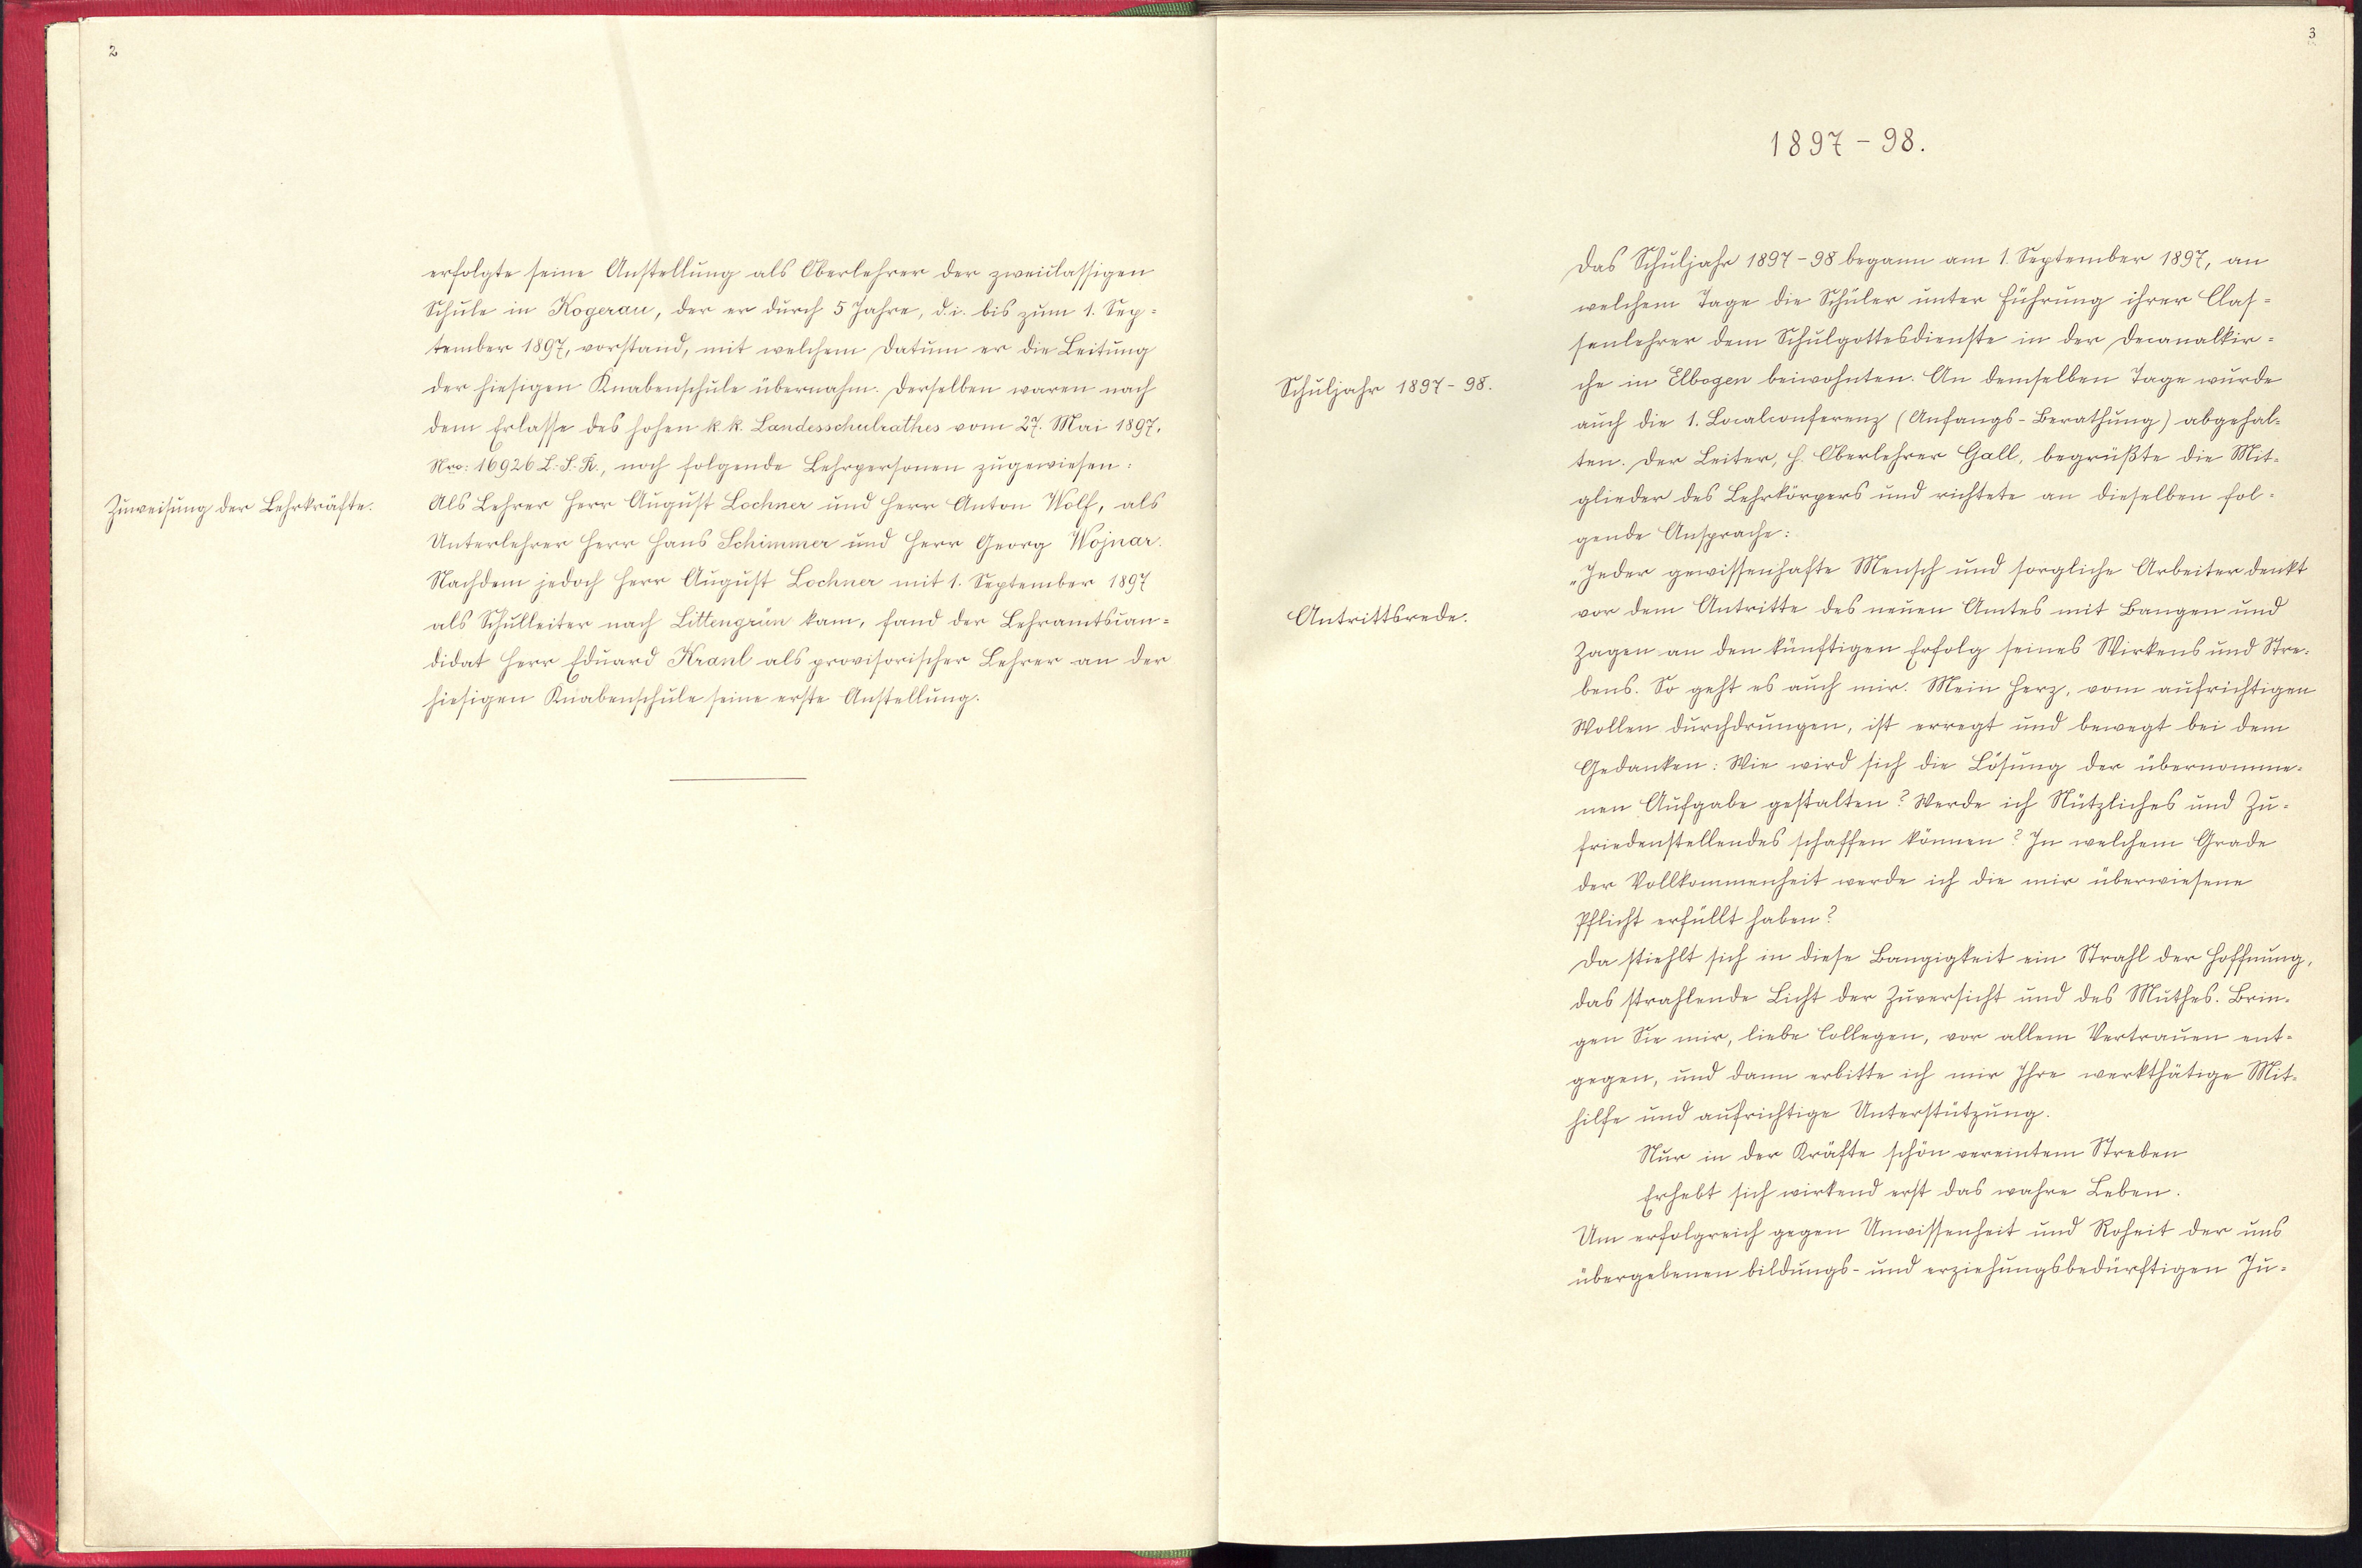 2
erfolgte seine Anstellung als Oberlehrer der zweiclassigen
Schule in Kogerau, der er durch 5 Jahre, d. i. bis zum 1. Sep-
tember 1897, vorstand, mit welchem Datum er die Leitung
der hiesigen Knabenschule übernahm. Derselben waren nach
dem Erlasse des hohen k. k. Landesschulrathes vom 27. Mai 1897,
Nro: 16926 L. S. R., noch folgende Lehrpersonen zugewiesen:
Zuweisung der Lehrkräfte.
Als Lehrer Herr August Lochner und Herr Anton Wolf, als
Unterlehrer Herr Hans Schimmer und Herr Georg Wojnar.
Nachdem jedoch Herr August Lochner mit 1. September 1897
als Schulleiter nach Littengrün kam, fand der Lehramtscan-
didat Herr Eduard Kranl als provisorischer Lehrer an der
hiesigen Knabenschule seine erste Anstellung.
3
1897-98.
Das Schuljahr 1897-98 begann am 1. September 1897, an
welchem Tage die Schüler unter Führung ihrer Clas-
senlehrer dem Schulgottesdienste in der Decanalkir-
Schuljahr 1897-98.
che in Elbogen beiwohnten. An demselben Tage wurde
auch die 1. Localconferenz (Anfangs-Berathung) abgehal-
ten. Der Leiter, H. Oberlehrer Gall, begrüßte die Mit-
glieder des Lehrkörpers und richtete an dieselben fol-
gende Ansprache:
„Jeder gewissenhafte Mensch und sorgliche Arbeiter denkt
Antrittsrede.
vor dem Antritte des neuen Amtes mit Bangen und
Zagen an den künftigen Erfolg seines Wirkens und Stre-
bens. So geht es auch mir. Mein Herz, vom aufrichtigen
Wollen durchdrungen, ist erregt und bewegt bei dem
Gedanken: Wie wird sich die Lösung der übernomme-
nen Aufgabe gestalten? Werde ich Nützliches und Zu-
friedenstellendes schaffen können? In welchem Grade
der Vollkommenheit werde ich die mir überwiesene
Pflicht erfüllt haben?
Da stiehlt sich in diese Bangigkeit ein Strahl der Hoffnung,
das strahlende Licht der Zuversicht und des Muthes. Brin-
gen Sie mir, liebe Collegen, vor allem Vertrauen ent-
gegen, und dann erbitte ich mir Ihre werkthätige Mit-
hilfe und aufrichtige Unterstützung.
Nur in der Kräfte schön vereintem Streben
Erhebt sich wirkend erst das wahre Leben.
Um erfolgreich gegen Unwissenheit und Roheit der uns
übergebenen bildungs- und erziehungsbedürftigen Ju-